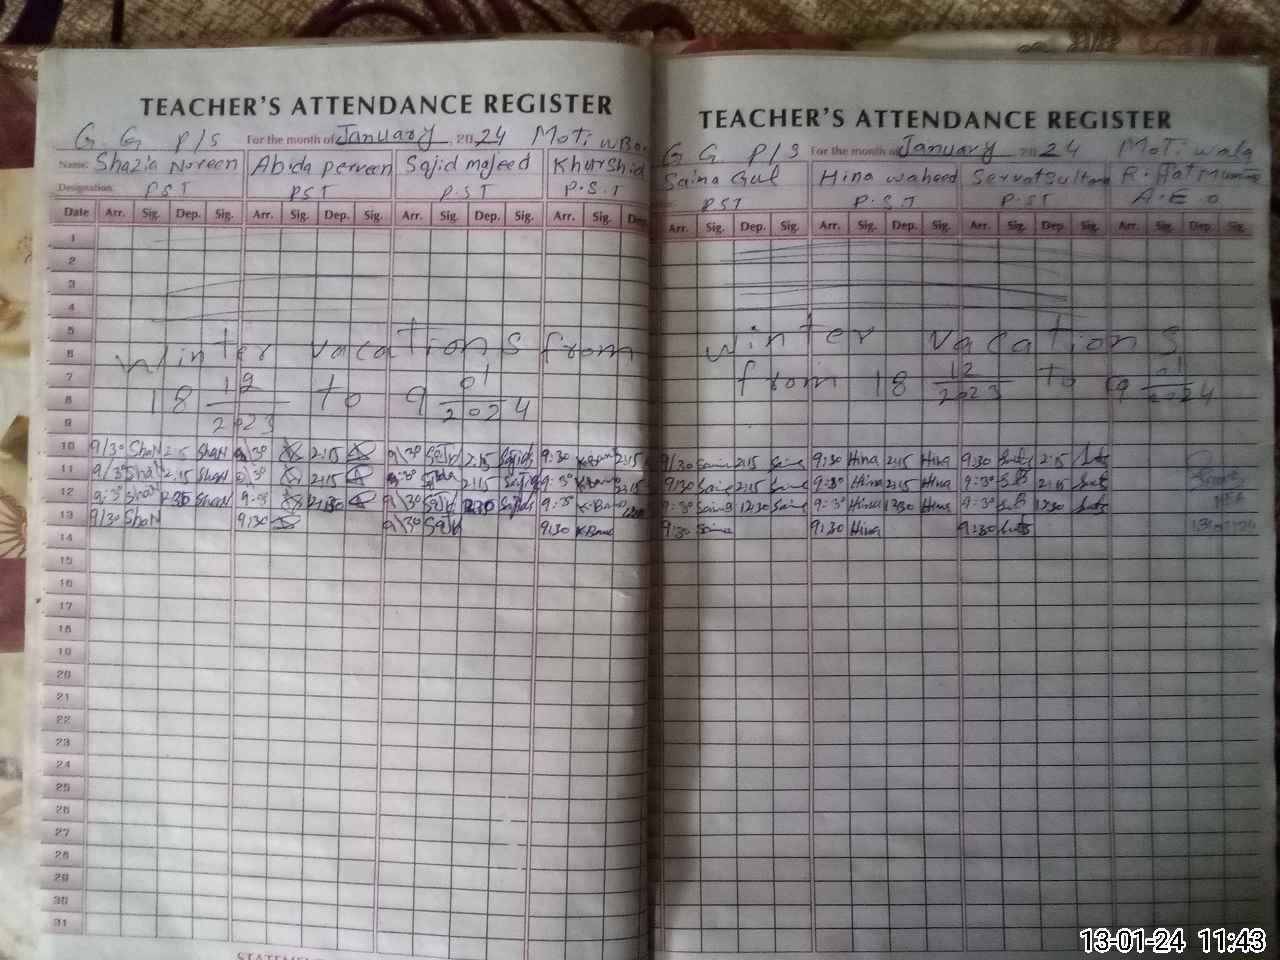 TEACHER'S ATTENDANCE REGISTER
G. G P/S For the month of January 2024 Moti
Name: Shazia Noreen Abida perveen Sajid majeed Khurshid
Designation: PST PST P.ST P.S.T
Date Arr. Sig. Dep. Sig. Arr. Sig. Dep. Sig. Arr. Sig. Dep. Sig. Arr. Sig.
1
2
3
4
5
Winter vacations from
6
7
18 12/2023 to 9 01/2024
8
9
10 9/30 ShaN 2:15 ShaN 9\30 2:15 9\30 Sajid 2:15 Sajid 9:30 K.Bano 2:15
11 9/30 ShaN 2:15 ShaN 9\30 2:15 9:30 2:15 Sajid 9:30 K.Bano 2:15
12 9:30 ShaN 12:30 ShaN 9:30 12:30 9\30 Sajid 12:30 Sajid 9:30 K.Bano
13 9/30 ShaN 9:30 9\30 Sajid 9:30 K.Bano
14
15
16
17
18
19
20
21
22
23
24
25
26
27
28
29
30
31
TEACHER'S ATTENDANCE REGISTER
G G P/S For the month of January 2024 Moti wala
Saima Gul Hina waheed Servat Sultana
PST P.S.T P.ST A.E.O
Arr. Sig. Dep. Sig. Arr. Sig. Dep. Sig. Arr. Sig. Dep. Sig. Arr. Sig. Dep. Sig.
winter vacations
from 18 12/2023 to 9 01/2024
9/30 Saima 2:15 Saima 9:30 Hina 2:15 Hina 9:30 2:15
9/30 Saima 2:15 Saima 9:30 Hina 2:15 Hina 9:30 2:15
9:30 Saima 12:30 Saima 9:30 Hina 12:30 Hina 9:30 12:30
9:30 Saima 9:30 Hina 9:30
13-01-24 11:43